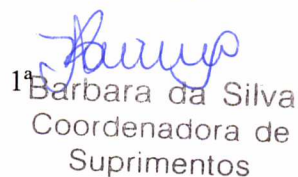 1ª
Barbara da Silva
Coordenadora de
Suprimentos